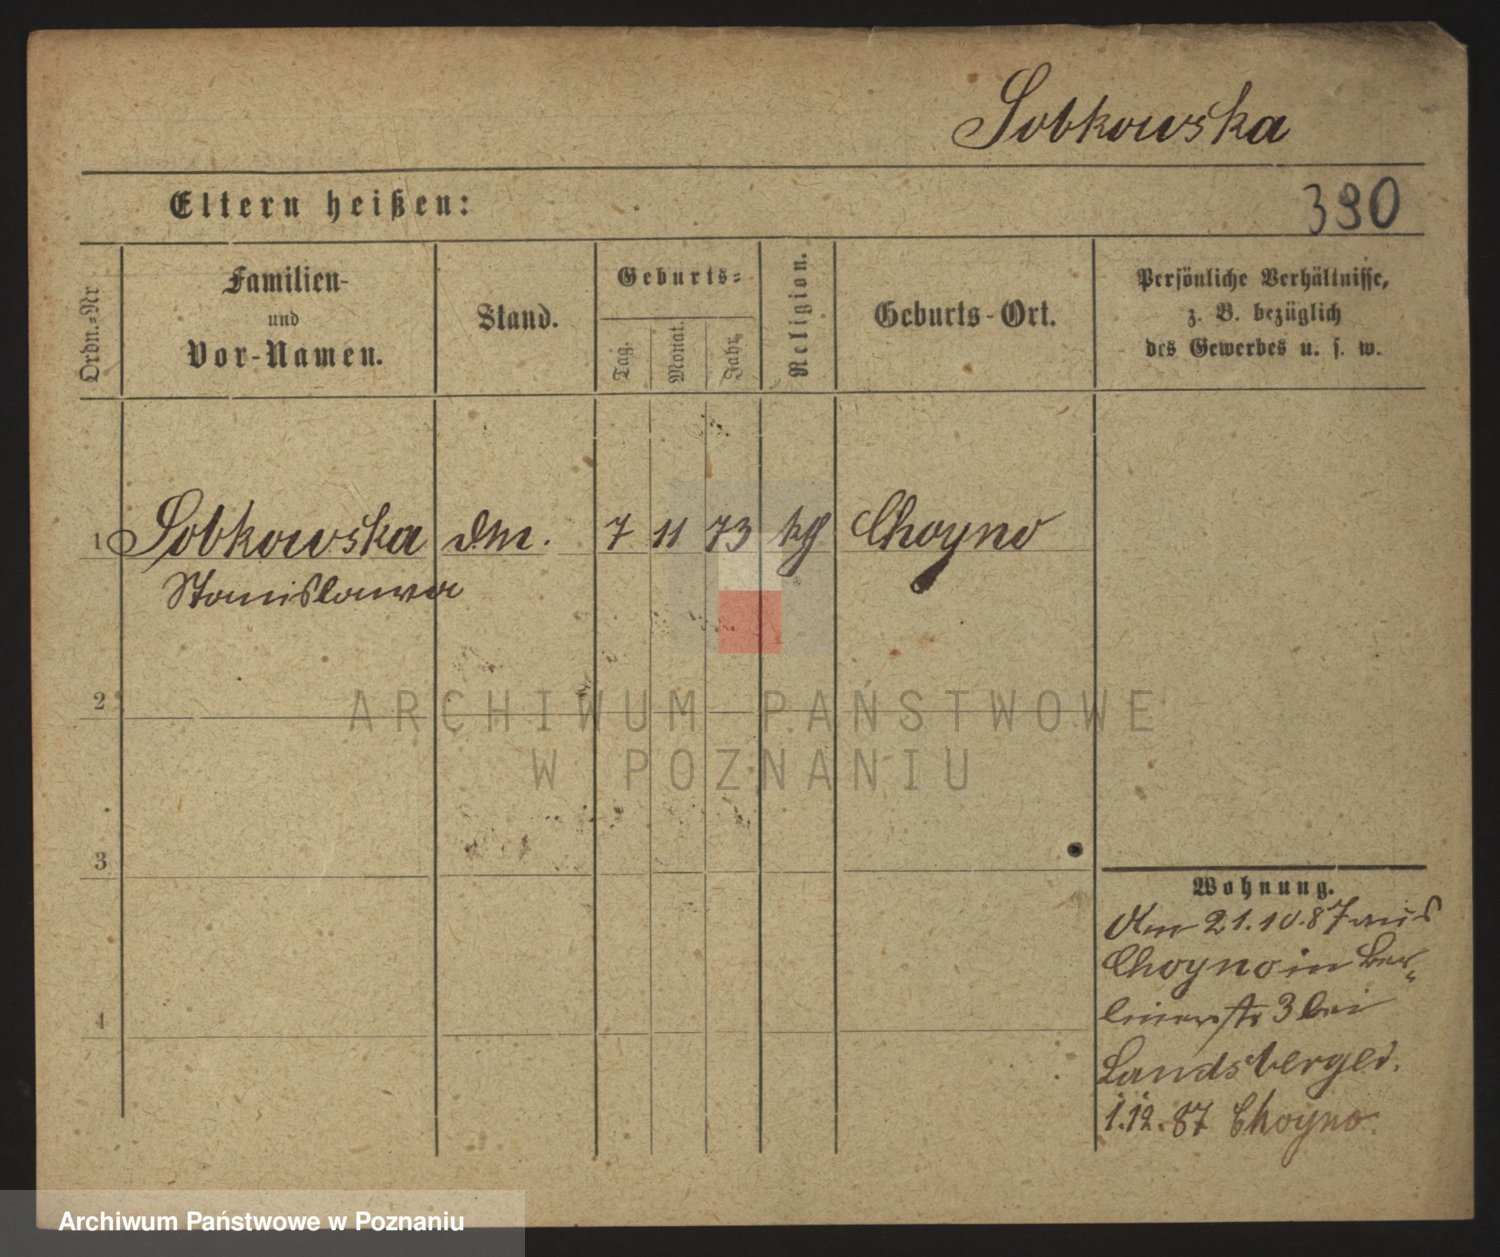 Sobkowska
Eltern heißen:
390
Ordn.-Nr
Familien-
und
Vor-Namen.
Stand.
Geburts-
Tag.
Monat.
Jahr.
Religion.
Geburts-Ort.
Persönliche Verhältnisse,
z. B. bezüglich
des Gewerbes u. s. w.
1 Sobkowska 7 11 73 kg Choyno
Stanislawa
2
ARCHIWUM PAŃSTWOWE
W POZNANIU
3
4
Wohnung.
Am 21.10.87 aus
Choyno in Ber-
linerstr 3 bei
Landsberger.
1.12.87 Choyno.
Archiwum Państwowe w Poznaniu